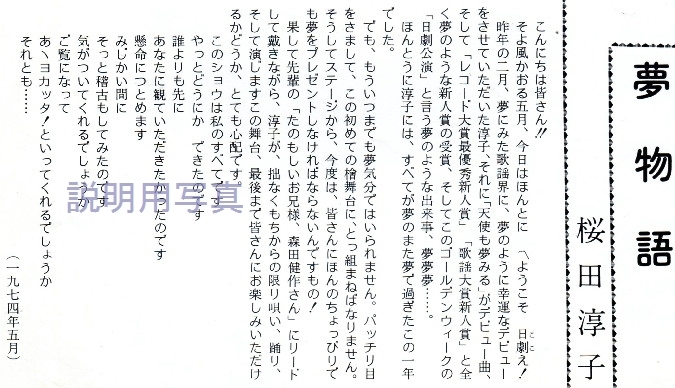 夢物語
桜田淳子
こんにちは皆さん!!
そよ風かおる五月、今日はほんとに 〽ようこそ 日劇え!
ここ
昨年の二月、夢にみた歌謡界に、夢のように幸運なデビュー
をさせていただいた淳子、それに「天使も夢みる」がデビュー曲、
そして「レコード大賞最優秀新人賞」「歌謡大賞新人賞」と全
く夢のような新人賞の受賞、そしてこのゴールデンウィークの
「日劇公演」と言う夢のような出来事、夢夢夢……。
ほんとうに淳子には、すべてが夢のまた夢で過ぎたこの一年
でした。
でも、もういつまでも夢気分ではいられません。パッチリ目
をさまして、この初めての檜舞台に、とっ組まねばなりません。
そうしてステージから、今度は、皆さんにほんのちょっぴりで
も夢をプレゼントしなければならないんですもの!
果して先輩の「たのもしいお兄様、森田健作さん」にリード
して戴きながら、淳子が、拙なくもちからの限り唄い、踊り、
そして演じますこの舞台、最後まで皆さんにお楽しみいただけ
るかどうか、とても心配です。
このショウは私のすべてです
やっとどうにか できたのです
誰よりも先に
あなたに観ていただきたかったのです
懸命につとめます
みじかい間に
そっと稽古もしてみたのです
気がついてくれるでしょうか
ご覧になって
あゝヨカッタ!といってくれるでしょうか
それとも……
(一九七四年五月)
説明用写真